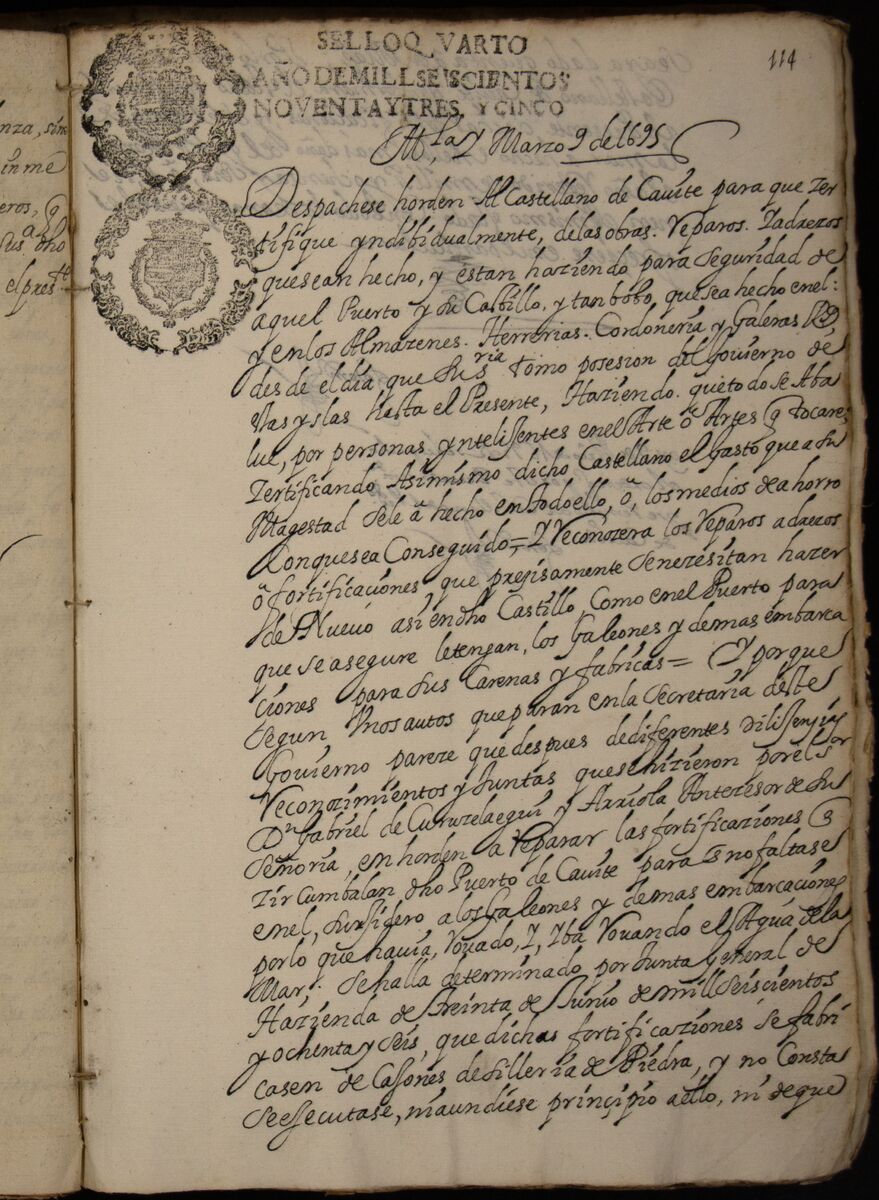 nza, sin
in me
eros, q
a
sus dho
el pres.te
114
SELLO QVARTO
AÑO DE MILL SEISCIENTOS
NOVENTA Y TRES, Y CINCO
M.la y Marzo 9 de 1695
Despachese horden Al Castellano de Cauite para que Zer
tifique yndibidualmente, de las obras. Reparos. Iadrezos
que sean hecho, y estan haziendo para seguridad de
aquel Puerto y su Castillo, y tanbobo, que sea hecho en el:
y en los Almazenes. Herrerias. Cordoneria y Galeras R.s
desde el dia, que su s.ria tomo posesion del Gouierno de
stas yslas hasta el Presente, Haziendo. que todo se Aba
lue, por personas yntelisentes en el Arte o Artes q tocare,
Zertificando Asimismo dicho Castellano el gasto que a su
Magestad sele a hecho en todo ello, o, los medios de ahorro
Con que sea Conseguido,= Y Reconozera los Reparos adrezos
o fortificaciones que prezisamente se nezesitan hazer
de Nueuo asi en dho Castillo, Como en el Puerto para
que se asegure le tengan, los Galeones y demas embarca
ciones para sus Carenas y fabricas= Y porque
segun Vnos autos que paran en la secretaria deste
Gouierno pareze que despues de diferentes Dilisensias
Reconozimientos y Juntas que se hizieron por el s.or
D.n Gabriel de Curuzelaegui y Arriola Antezesor de su
señoria, en horden a Reparar las fortificaziones q
Zircumbalan dho Puerto de Cauite para q no faltase
en el, surxidero a los Galeones y demas embarcaciones
por lo que hauia, Rouado, y, Yba Rouando el Agua de la
Mar; se halla determinado por Junta General de
Hazienda de treinta de Junio de mill seiscientos
y ochenta y seis, que dichas fortificaziones se fabri
casen de Caxones de silleria de Piedra, y no Consta
se esecutase, ni aun diese principio a ello, ni de que